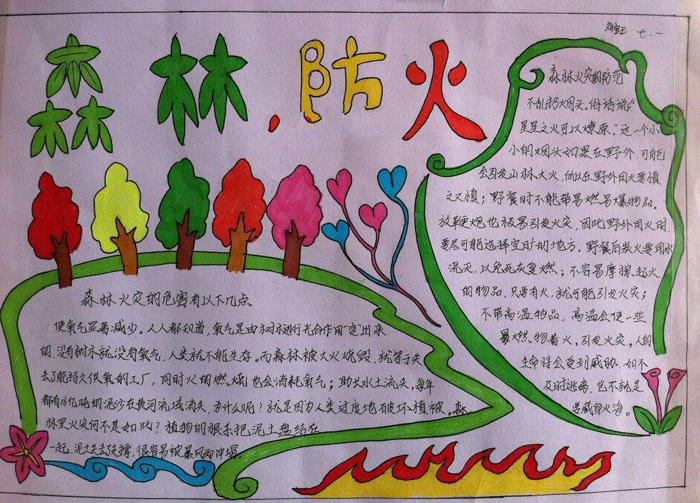 森林防火
七.一
森林火灾的防范
不乱扔烟头,俗话说“
星星之火可以燎原。这一个小
小的烟头如果在野外,可能
会引发山林大火,所以在野外用火要慎
之又慎;野餐时不能带易燃易爆物品,
放鞭炮也极易引发火灾,因此野外用火时
要尽可能选择空旷的地方。野餐后熄火要用水
浇灭,以免死灰复燃;不容易摩擦起火
的物品,只要有火,就可能引发火灾;
不带高温物品,高温会使一些
易燃物着火,引发火灾,人的
生命将会受到威胁,如不
及时逃离,岂不就是
葬身火海。
森林火灾的危害有以下几点
使氧气显著减少。人人都知道,氧气是由树木进行光合作用“变”出来
的,没有树木就没有氧气,人类就不能生存。而森林被大火烧毁,就等于失
去了能持久供氧的工厂,同时火的燃烧也会消耗氧气;助长水土流失,每年
都有16亿吨的泥沙在黄河流域消失,为什么呢?就是因为人类过度地破坏植被。森
林里火灾何不是如此?植物的根系把泥土盘结在
一起,泥土失去支撑,很容易被暴风雨冲塌。